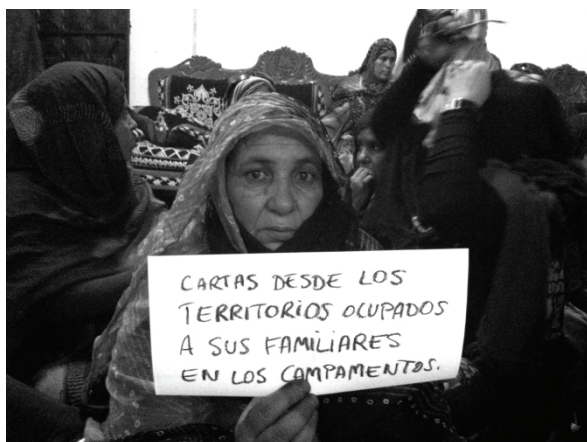 CARTAS DESDE LOS
TERRITORIOS OCUPADOS
A SUS FAMILIARES
EN LOS CAMPAMENTOS.